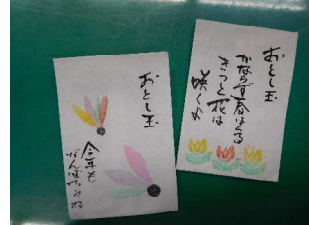 おとし玉
今年も
がんばろうね
おとし玉
かならず春はくる
きっと花は
咲くよ